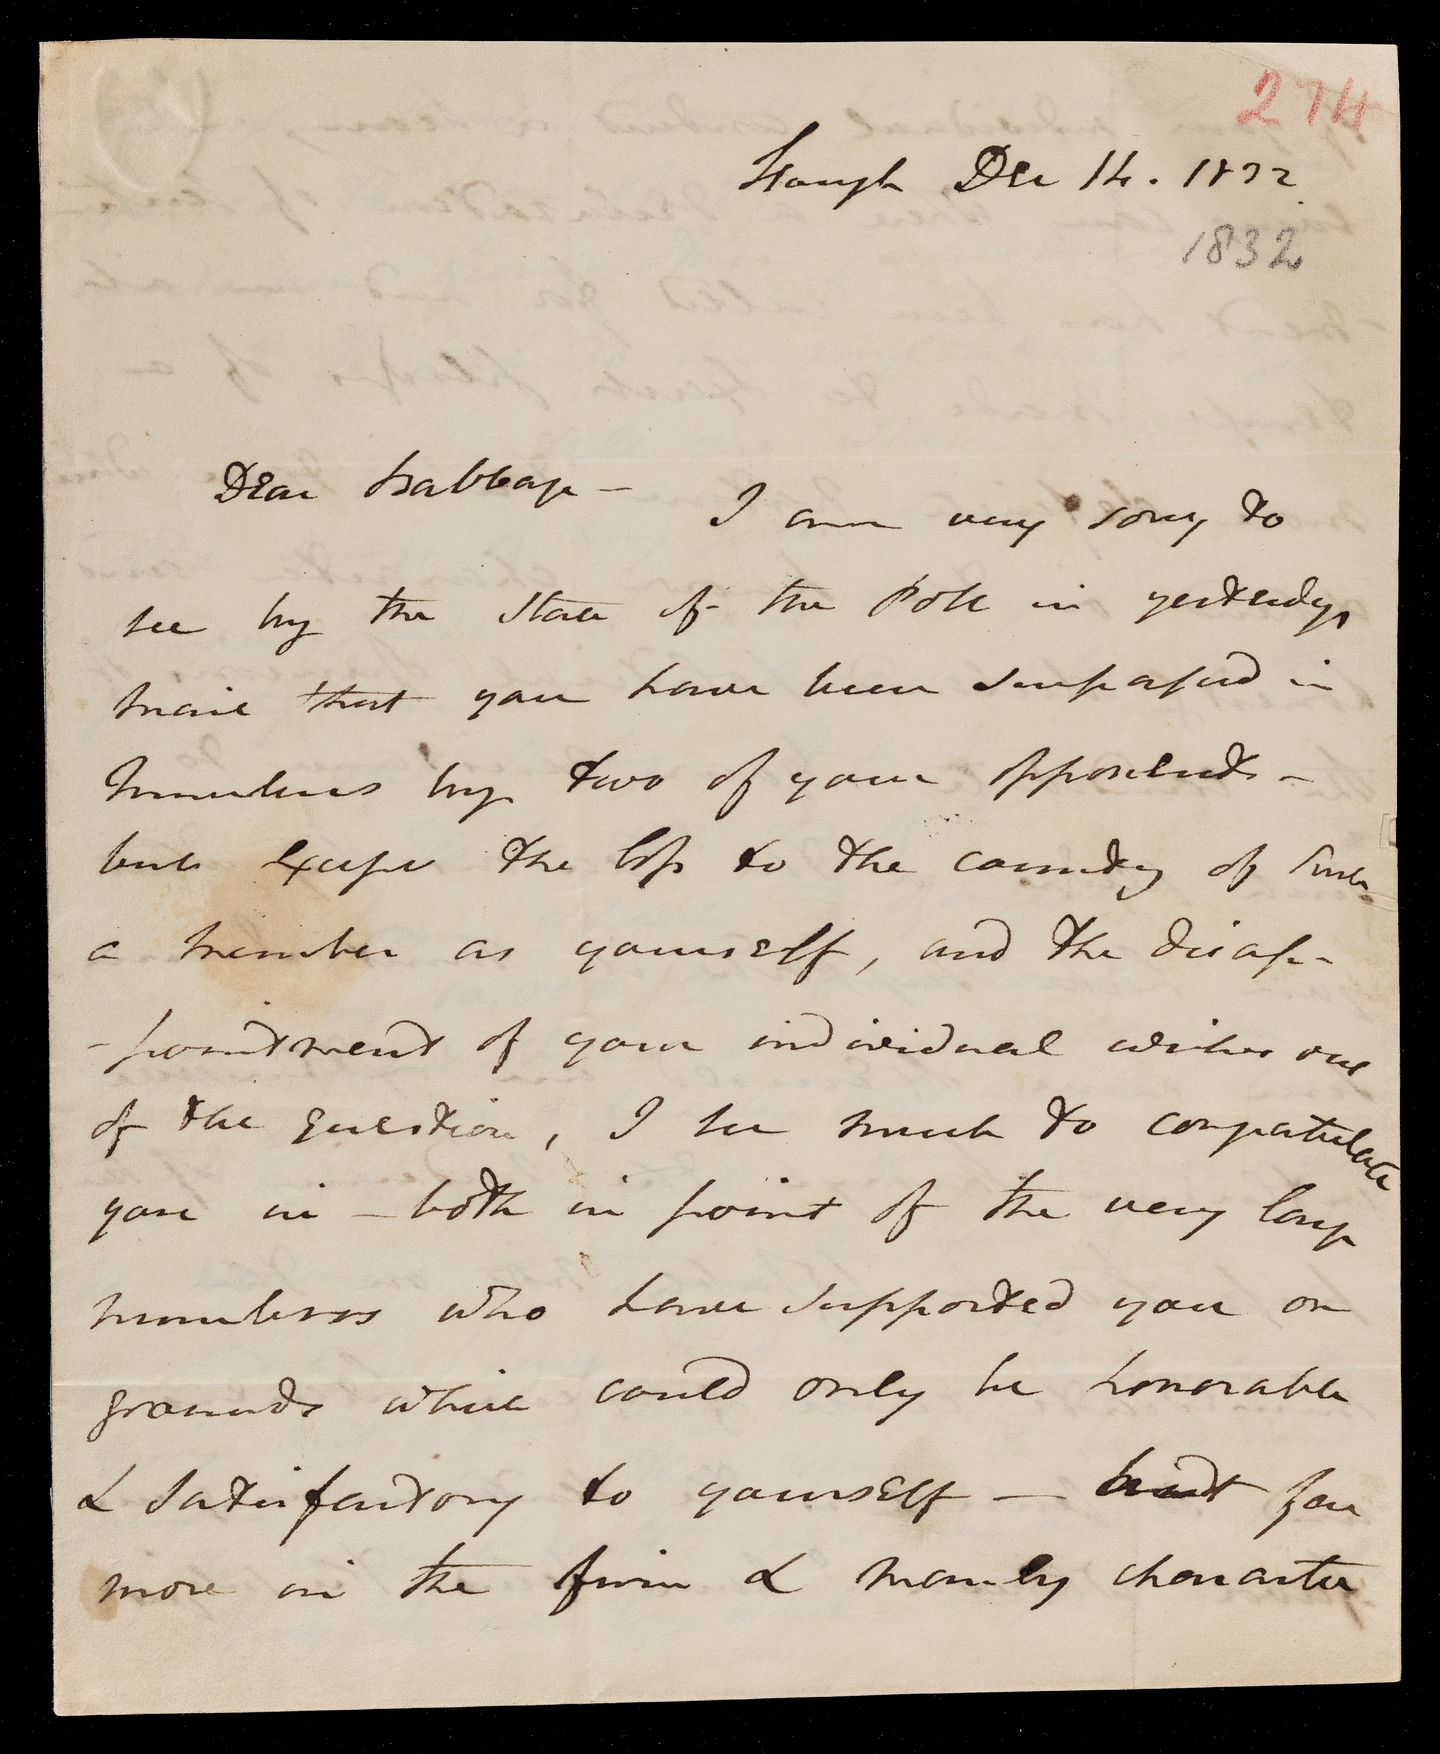 274
Slough Dec 14. 1832
1832
Dear Babbage – I am very sorry to
see by the State of the Poll in yesterdays
mail that you have been surpassed in
numbers by two of your opponents –
but except the loss to the country of such
a member as yourself, and the disap-
-pointment of your individual wishes out
of the question, I see much to congratulate
you in – both in point of the very large
numbers who have supported you on
grounds which could only be honorable
& satisfactory to yourself – but far
more in the firm & manly character